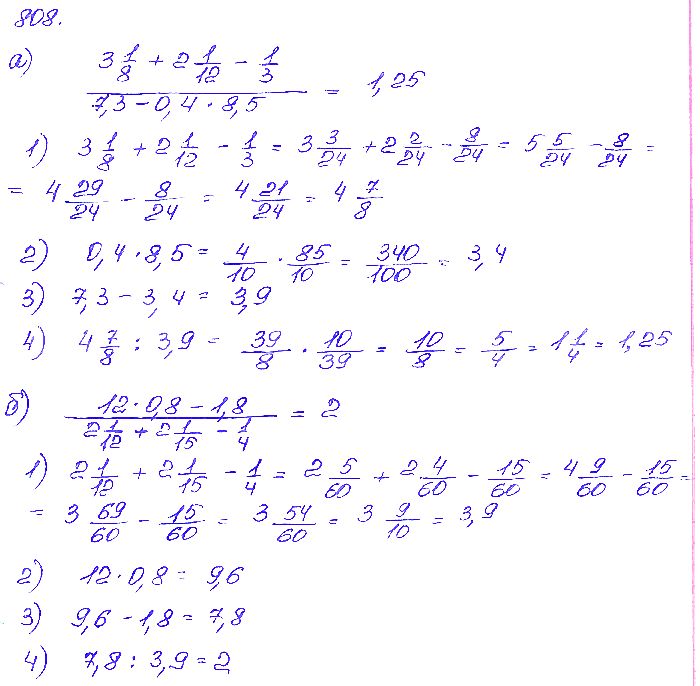 808.
а) (3 1/8 + 2 1/12 - 1/3) / (7,3 - 0,4 · 8,5) = 1,25
1) 3 1/8 + 2 1/12 - 1/3 = 3 3/24 + 2 2/24 - 8/24 = 5 5/24 - 8/24 =
= 4 29/24 - 8/24 = 4 21/24 = 4 7/8
2) 0,4 · 8,5 = 4/10 · 85/10 = 340/100 = 3,4
3) 7,3 - 3,4 = 3,9
4) 4 7/8 : 3,9 = 39/8 · 10/39 = 10/8 = 5/4 = 1 1/4 = 1,25
б) (12 · 0,8 - 1,8) / (2 1/12 + 2 1/15 - 1/4) = 2
1) 2 1/12 + 2 1/15 - 1/4 = 2 5/60 + 2 4/60 - 15/60 = 4 9/60 - 15/60 =
= 3 69/60 - 15/60 = 3 54/60 = 3 9/10 = 3,9
2) 12 · 0,8 = 9,6
3) 9,6 - 1,8 = 7,8
4) 7,8 : 3,9 = 2